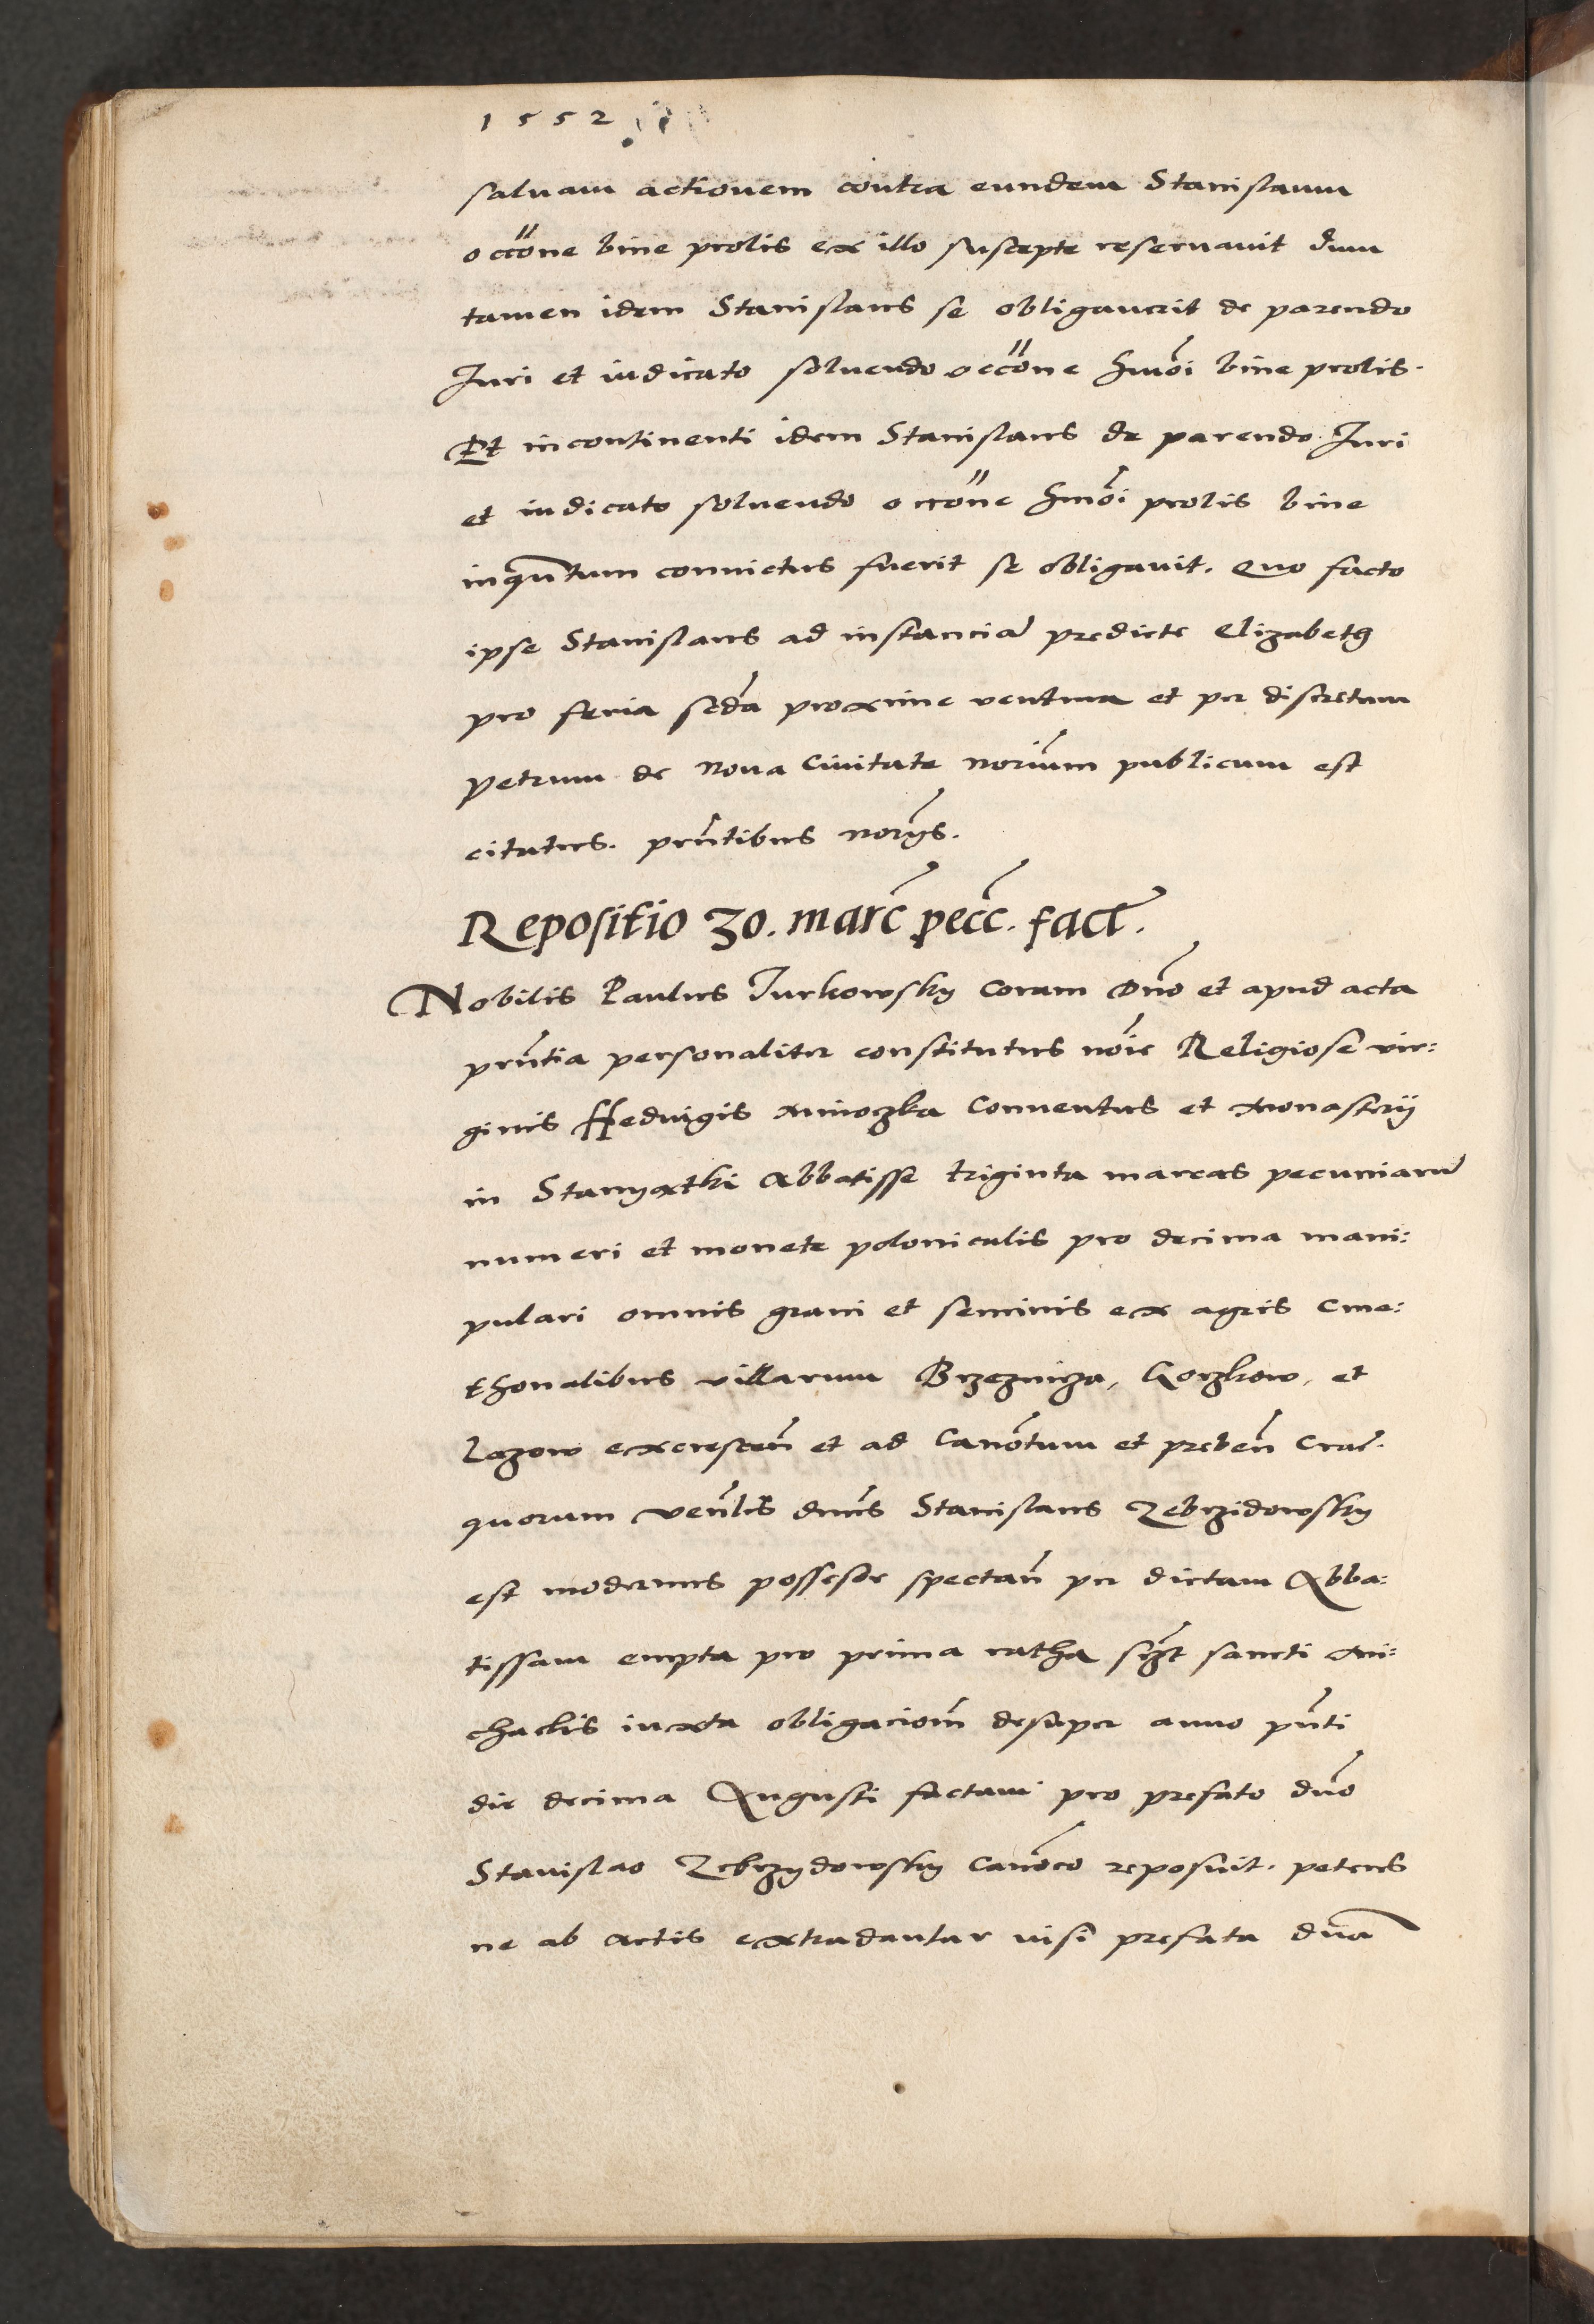 1552
saluam actionem contra eundem Stanislaum
occo͞ne bine prolis ex illo suscepte reseruauit dum
tamen idem Stanislaus se obligauerit de parendo
Iuri et iudicato soluendo occo͞ne hmo͞i bine prolis.
Et incontinenti idem Stanislaus de parendo Iuri
et iudicato soluendo occo͞ne hmo͞i prolis bine
inqua͞ntum conuictus fuerit se obligauit. Quo facto
ipse Stanislaus ad instancia͞ predicte Elizabeth
pro feria se͞da proxime ventura et per discretum
Petrum de Noua Ciuitate nori͞um publicum est
citatus. pru͞tibus nory͞s.
Repositio 30. marc͞ pecc͞. fact͞.
Nobilis Paulus Jurkowsky coram Dno͞ et apud acta
prn͞tia personaliter constitutus no͞ie Religiose vir:
ginis Hedvigis Conuentus et Monasterij
in Stanyatki Abbatisse triginta marcas pecuniaru͞
numeri et monete polonicalis pro decima mani:
pulari omnis grani et seminis ex agris cme:
thonalibus villarum Brzeznicza, Goczkow, et
Lazow excrescen͞ et ad Cano͞tum et preben͞ Crac͞.
quorum ven͞lis dnus͞ Stanislaus Zebrzidowsky
est modernus possesor spectan͞ per dictam Abba:
tissam empta pro prima ratha sancti Mi:
chaelis iuxta obligaciom͞ desuper anno pn͞ti
die decima Augusti factam pro prefato dno͞
Stanislao Zebrzydowsky Cano͞co reposuit. petens
ne ab actis extradantur nisi prefata dna͞